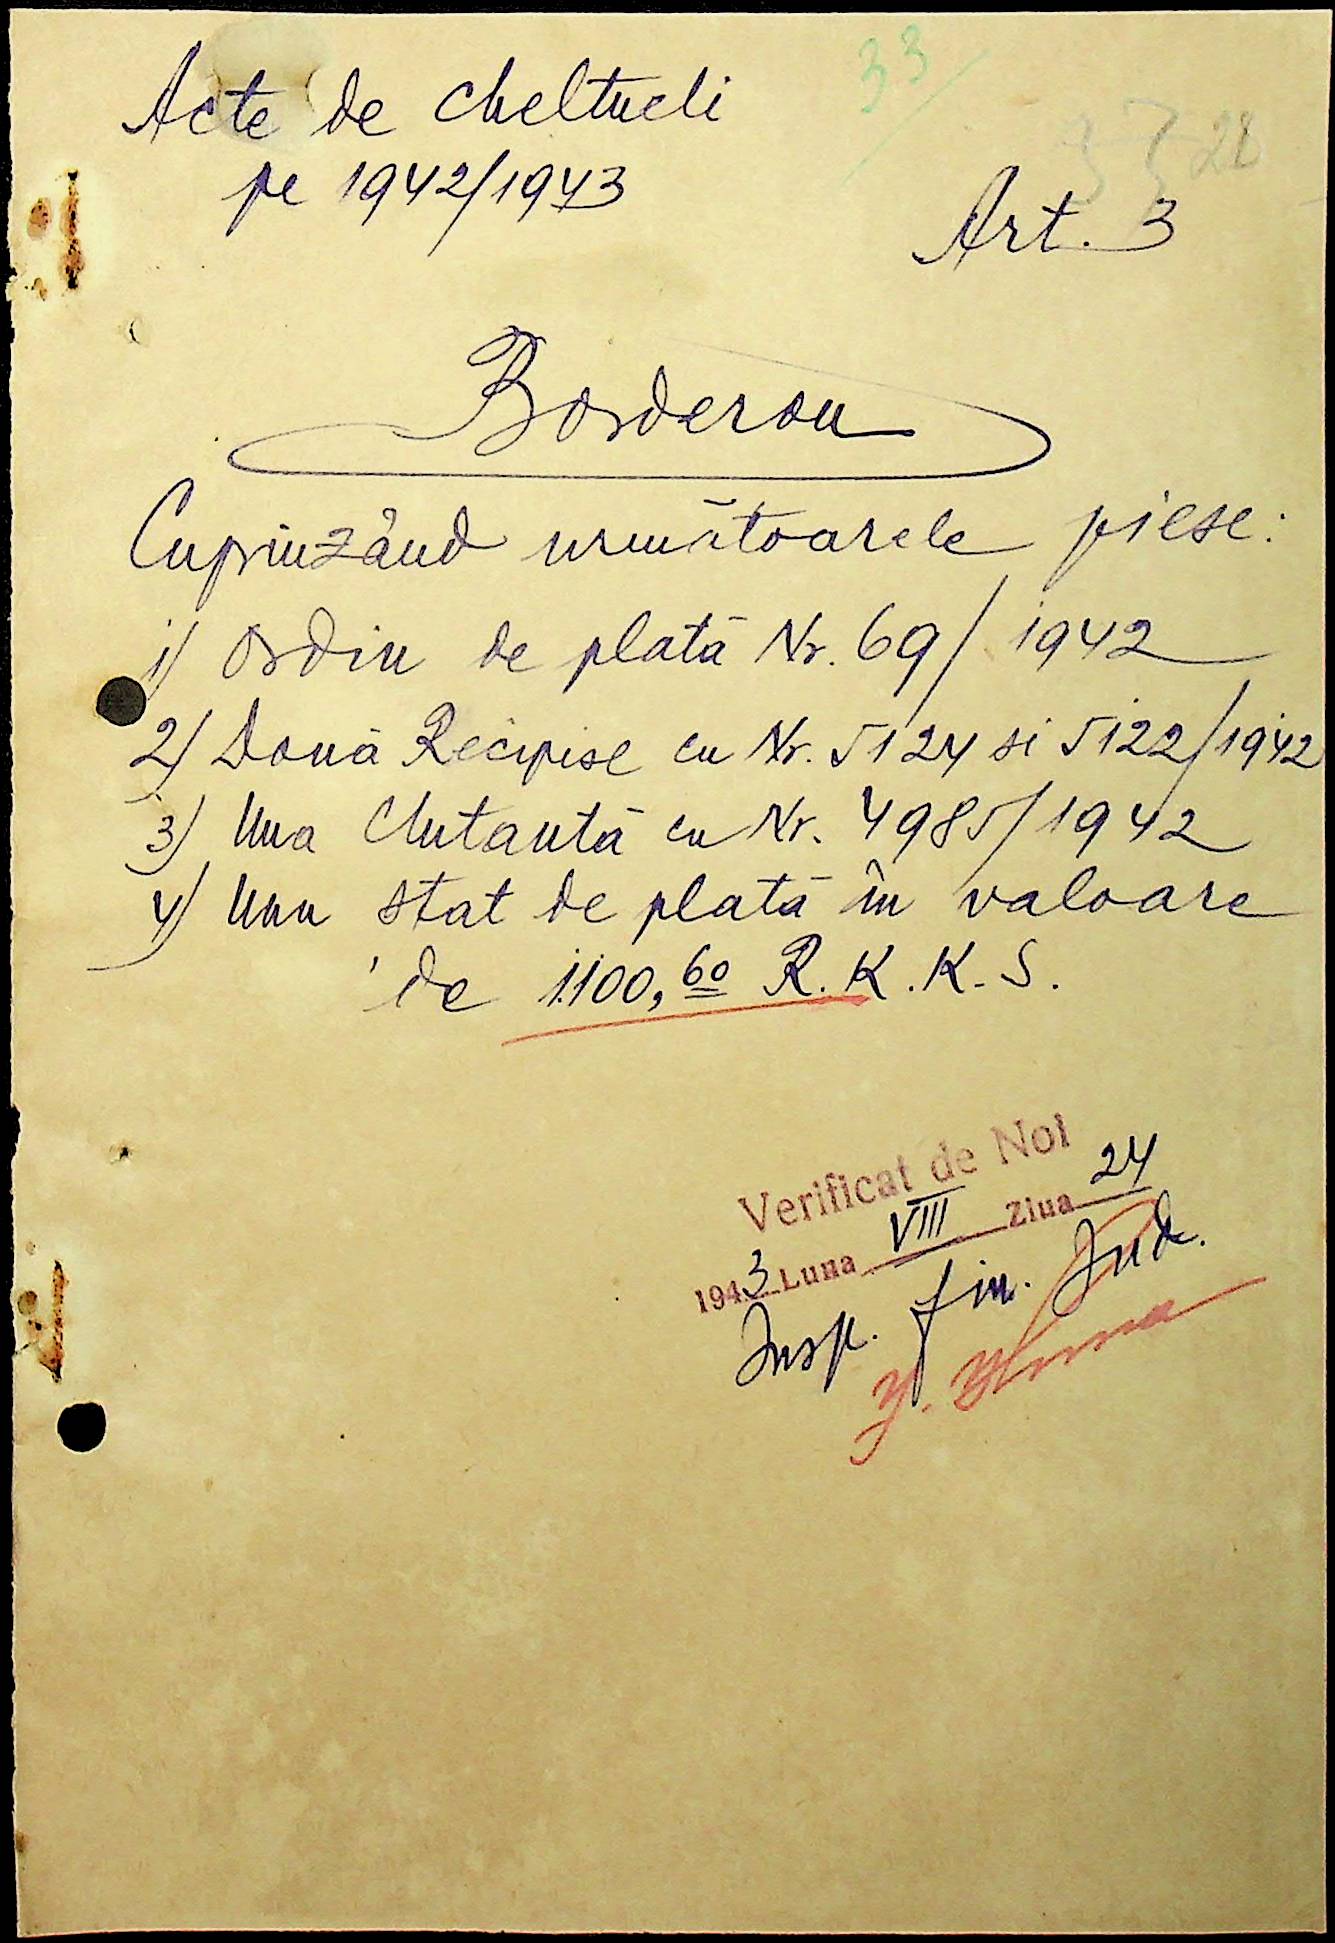 33
28
Acte de cheltueli
pe 1942/1943
Art. 3
Borderou
Cuprinzând următoarele piese:
1) Ordin de plată Nr. 69/1942
2) Două Recipise cu Nr. 5124 si 5122/1942
3) Una Chitantă cu Nr. 4985/1942
4) Unu stat de plată în valoare
de 1.100,60 R.K.K.S.
Verificat de Noi
1943 Luna VIII Ziua 24
Insp. fin. Jud.